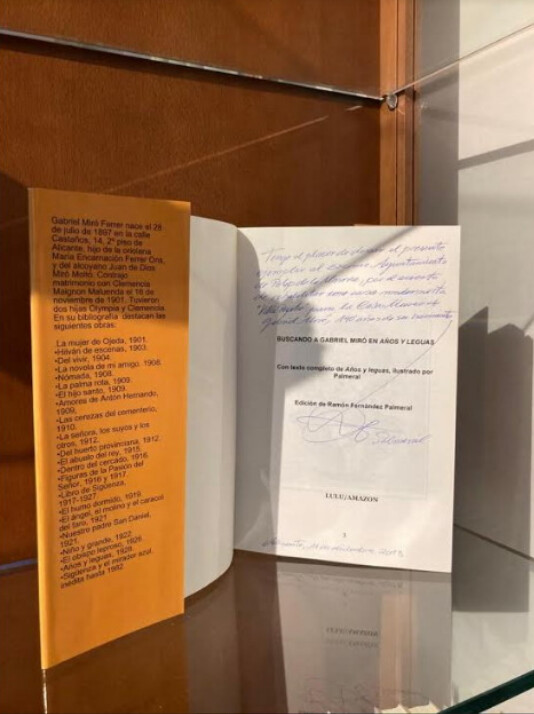 Gabriel Miró Ferrer nace el 28
de julio de 1897 en la calle
Castaños, 14, 2º piso de
Alicante, hijo de la oriolana
Maria Encarnación Ferrer Ons,
y del alcoyano Juan de Dios
Miró Moltó. Contrajo
matrimonio con Clemencia
Maignon Maluenda el 16 de
noviembre de 1901. Tuvieron
dos hijas Olympia y Clemencia.
En su bibliografía destacan las
siguientes obras:
.La mujer de Ojeda, 1901.
•Hilván de escenas, 1903.
•Del vivir, 1904.
•La novela de mi amigo. 1908.
•Nómada, 1908.
•La palma rota, 1909.
•El hijo santo, 1909.
•Amores de Antón Hernando,
1909,
•Las cerezas del cementerio,
1910.
•La señora, los suyos y los
otros, 1912.
•Del huerto provinciana, 1912.
•El abuelo del rey, 1915.
•Dentro del cercado, 1916.
•Figuras de la Pasión del
Señor, 1916 y 1917.
•Libro de Sigüenza,
1917-1927.
•El humo dormido, 1919.
•El ángel, el molino y el caracol
del faro, 1921.
•Nuestro padre San Daniel,
1921.
•Niño y grande, 1922.
•El obispo leproso, 1926.
•Años y leguas, 1928.
•Sigüenza y el mirador azul,
inédita hasta 1982.
Tengo el placer de donar el presente
ejemplar al Ayuntamiento
de
para la Casa Museo
Gabriel Miró,
BUSCANDO A GABRIEL MIRÓ EN AÑOS Y LEGUAS
Con texto completo de Años y leguas, ilustrado por
Palmeral
Edición de Ramón Fernández Palmeral
Palmeral
LULU/AMAZON
3
Alicante, diciembre 2013